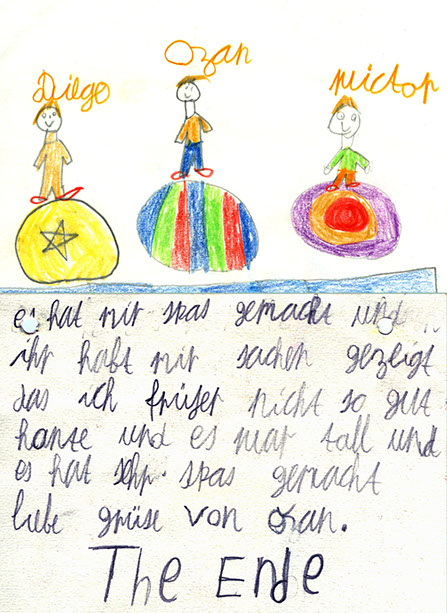 Diego Ozan Victor
es hat mir spas gemacht und
ihr habt mir sachen gezeigt
das ich früher nicht so gut
konte und es war toll und
es hat sehr spas gemacht
liebe grüse von Ozan.
The Ende